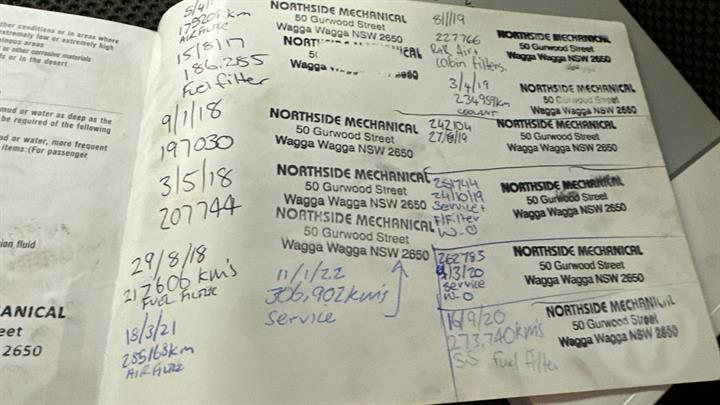 ther conditions or in areas where
extremely low or extremely high
minous areas
or other corrosive materials
ts or in the desert
mud or water as deep as the
be required of the following
ud or water, more frequent
items:(For passenger
ion fluid
ANICAL
eet
2650
5/4/1
178208km
AIR FILTER
15/8/17
186.285
Fuel filter
9/1/18
197030
3/5/18
207744
29/8/18
217606 km's
FUEL FILTER
18/3/21
285168km
AIR FILTER
NORTHSIDE MECHANICAL
50 Gurwood Street
Wagga Wagga NSW 2650
NORTHSIDE MECHANICAL
Wagga Wagga
2650
NORTHSIDE MECHANICAL
50 Gurwood Street
Wagga Wagga NSW 2650
NORTHSIDE MECHANICAL
50 Gurwood Street
Wagga Wagga NSW 2650
NORTHSIDE MECHANICAL
50 Gurwood Street
Wagga Wagga NSW 2650
11/1/22
306,902km's
Service
8/1/19
227766
R+R Air+
Cabin filters
3/4/19
234989km
242104
27/8/19
251744
24/10/19
Service+
F/Filter
W-O
262785
4/3/20
Service
W-O
16/9/20
273,740km's
S-S Fuel Filter
NORTHSIDE MECHANICAL
50 Gurwood Street
Wagga Wagga NSW 2650
NORTHSIDE MECHANICAL
50 Gurwood Street
Wagga Wagga NSW 2650
NORTHSIDE MECHANICAL
50 Gurwood Street
Wagga Wagga NSW 2650
NORTHSIDE MECHANICAL
50 Gurwood Street
Wagga Wagga NSW 2650
NORTHSIDE MECHANICAL
50 Gurwood Street
Wagga Wagga NSW 2650
NORTHSIDE MECHANICAL
50 Gurwood Street
Wagga Wagga NSW 2650